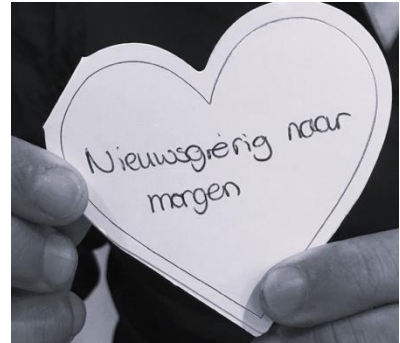 Nieuwsgierig naar
morgen